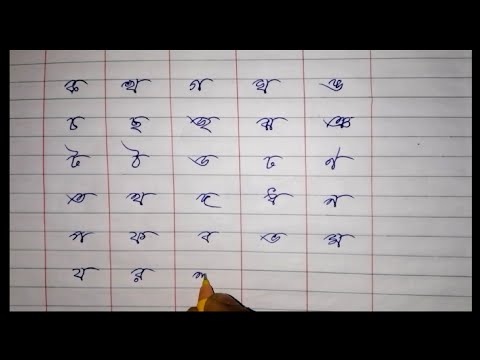 ক খ গ ঘ ঙ
চ ছ জ ঝ ঞ
ট ঠ ড ঢ ণ
ত থ দ ধ ন
প ফ ব ভ ম
য র